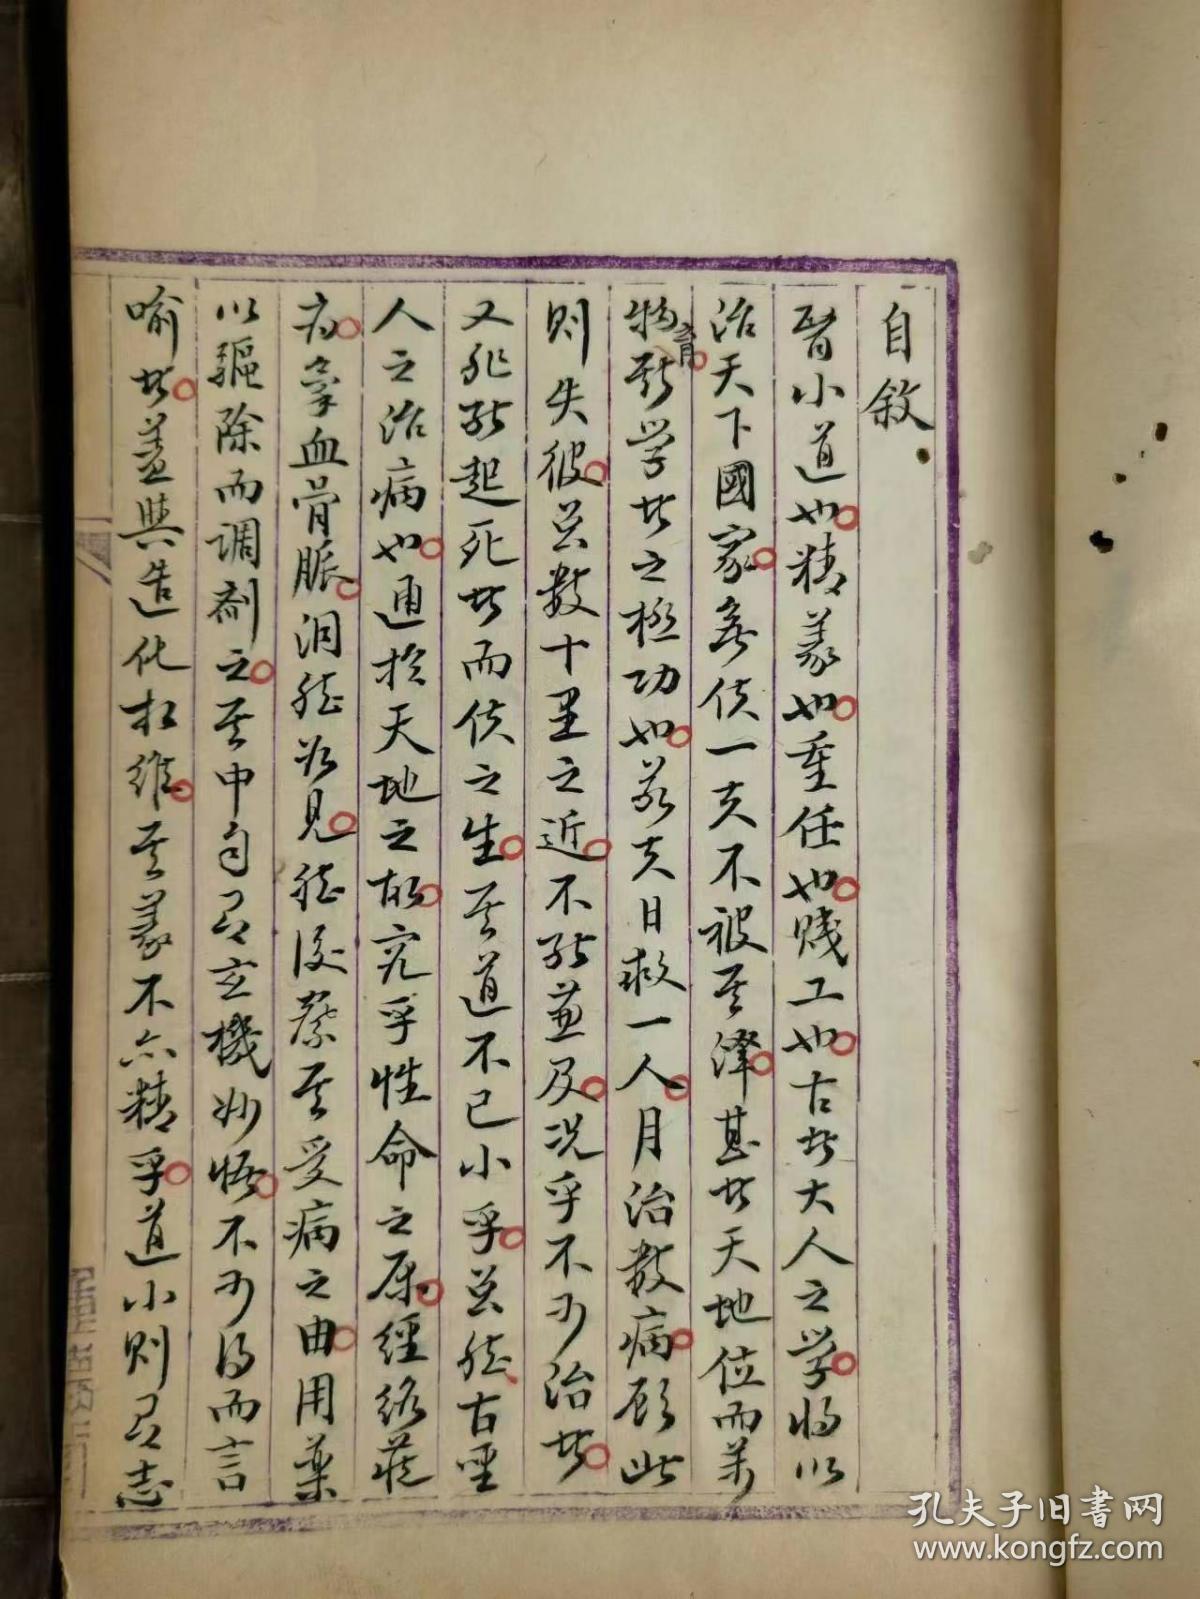 自敘
醫小道也精義也重任也賤工也古者大人之学將以
治天下國家無使一夫不被其澤甚者天地位而萬
物育斯学者之極功也若夫日救一人月治數病顾此
則失彼虽數十里之近不能兼及况乎不可治者
又非能起死者而使之生其道不已小乎虽然古聖
人之治病也通於天地之故究乎性命之原經絡藏
府氣血骨脈洞然如見然後察其受病之由用藥
以驅除而调劑之其中自有玄機妙悟不可得而言
喻者蓋與造化相維其義不亦精乎道小則有志
孔夫子旧书网
www.kongfz.com